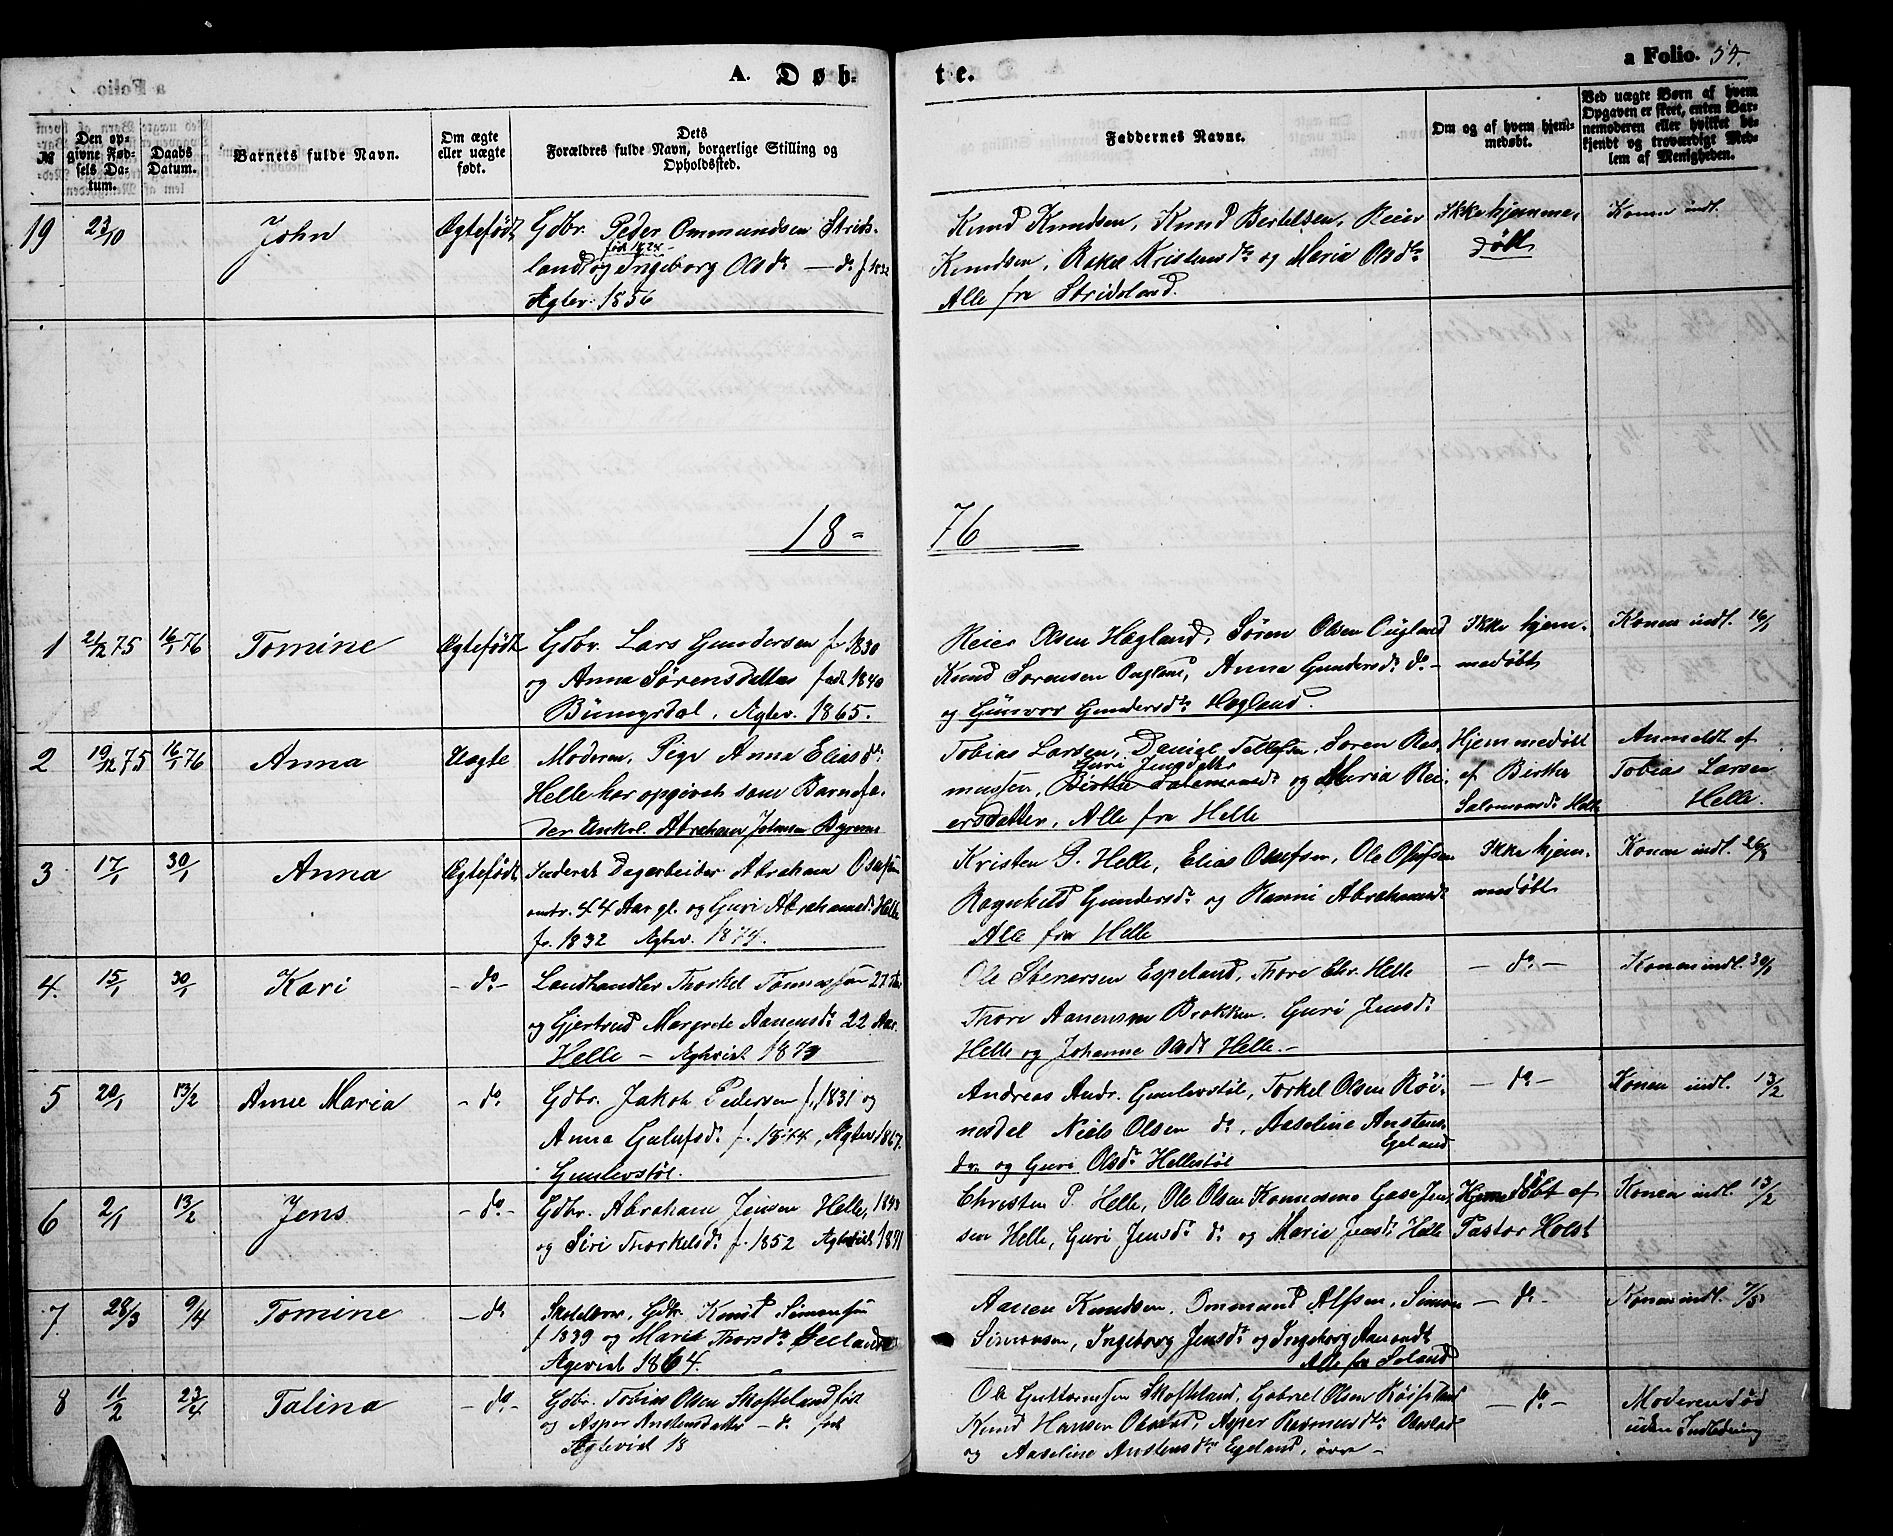 A. Døb-
te.
a Folio. 54.
№
Den op-
givne Fød-
sels Da-
tum.
Daabs
Datum.
Barnets fulde Navn.
Om ægte
eller uægte
født.
Dets
Forældres fulde Navn, borgerlige Stilling og
Opholdssted.
Faddernes Navne.
Om og af hvem hjem-
medøbt.
Ved uægte Børn af hvem
Opgaven er skeet, enten Bar-
nemoderen eller hvilket be-
kjendt og troværdigt Med-
lem af Menigheden.
19 23/10 John Ægtefødt
Gdbr. Peder Ommundsen Strids-
født 1828
land og Ingeborg Olsdr — do f 1832
Ægtev. 1856
Knud Knudsen, Knud Bertelsen, Reier
Knudsen, Rakel Kristensdtr og Maria Olsdtr
Alle fra Stridsland.
Ikke hjemme-
døbt
Konen indl.
18 = 76
1 21/12 75 16/1 76 Tomine Ægtefødt
Gdbr. Lars Gundersen f. 1830
og Anna Sørensdatter født 1840
Ægtev. 1865.
Reier Olsen Høgland, Søren Olsen Øugland
Knud Sørensen Øugland, Anna Gundersdr do -
og Gunvor Gundersdtr Høgland.
Ikke hjem-
medøbt
Konen indl. 16/1
2 19/12 75 16/1 76 Anna Uægte
Moderen, Pige Anna Eliasdtr
Helle har opgivet som Barnefa-
der Enkel. Abraham Johnsen
Tobias Larsen, Daniel Tollefsen, Søren Ras-
Guri Jensdatter
mussen, Birthe Salomonsdr og Maria Rei-
ersdatter, Alle fra Helle
Hjemmedøbt
af Birthe
Salomonsdr Helle
Anmeldt af
Tobias Larsen
Helle.
3 17/1 30/1 Anna Ægtefødt
Inderst Dagarbeider Abraham
omtr. 44 Aar gl. og Guri Abrahamsdr Helle
f. 1832 Ægtev. 1874.
Kristen P. Helle, Elias Olufsen, Ole Olufsen
Ragnhild Gundersdr og Ranni Abrahamsdr
Alle fra Helle
Ikke hjem-
medøbt
Konen indl. 26/3
4. 15/1 30/1 Kari - do -
Landhandler Thorkel Tønnessen 27 Aar
og Gjertrud Margrete Aanensdr 22 Aar.
Helle - Ægteviet 1873
Ole Stenersen Egeland, Thore Chr. Helle
Thore Aanensen Brokken. Guri Jensdr
Helle og Johanne Olsdr Helle. -
- do -
Konen indl. 30/1
5 20/1 13/2 Anne Maria - do
Gdbr. Jakob Pedersen f. 1831 og
Anna Gulufsdr f. 1844, Ægtev. 1867.
Gunlevstøl.
Andreas Andr. Gunlevstøl, Torkel Olsen Røi-
nesdal Niels Olsen do, Aaseline Anstens-
Egeland
dr og Guri Olsdr Hellestøl
- do -
Konen indl. 13/2
6 2/1 13/2 Jens - do -
Gdbr. Abraham Jensen Helle, 1848
og Siri Thorkelsdr f. 1852 Ægteviet 1871
Christen P. Helle, Ole Olsen Jen-
sen Helle, Guri Jensdr do og Marie Jensdr Helle
Hjemedøbt af
Pastor Holst
Konen indl. 13/2
7 28/3 9/4 Tomine - do
Skolelærer, Gdbr. Knud Simonsen
f 1839 og Marie Thorsdtr Seland
Ægeviet 1864.
Aanen Knudsen, Ommund Alfsen, Simon
Simonsen, Ingeborg Jensdtr og Ingeborg Aanensdtr
Alle fra Seland
- do -
Konen indl. 7/5
8 11/2 23/4 Talina - do -
Gdbr. Tobias Olsen Skofteland født
og Asper Anstensdatter — do født
Ægteviet 18
Ole Guttormsen Skofteland, Gabriel Olsen Røifsland
Knud Hansen Obestad, Asper Rasmusdtr Obestad
og Aaseline Anstensdtr Egeland, øvre -
- do -
Moderen død
uden Indledning